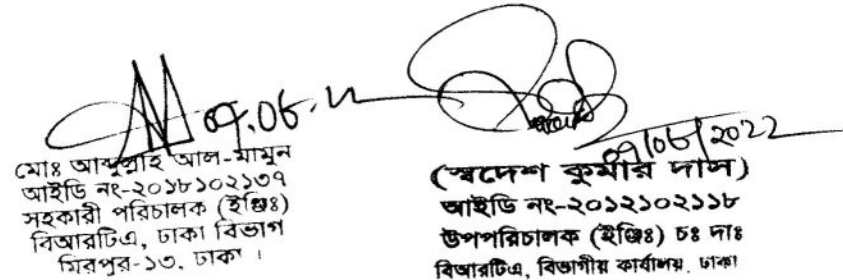 ০৭.০৬.২২
মোঃ আব্দুল্লাহ আল-মামুন
আইডি নং-২০১৮১০২১৩৭
সহকারী পরিচালক (ইঞ্জিঃ)
বিআরটিএ, ঢাকা বিভাগ
মিরপুর-১৩, ঢাকা ।
০৭/০৬/২০২২
(স্বদেশ কুমার দাস)
আইডি নং-২০১২১০২১১৮
উপপরিচালক (ইঞ্জিঃ) চঃ দাঃ
বিআরটিএ, বিভাগীয় কার্যালয়, ঢাকা